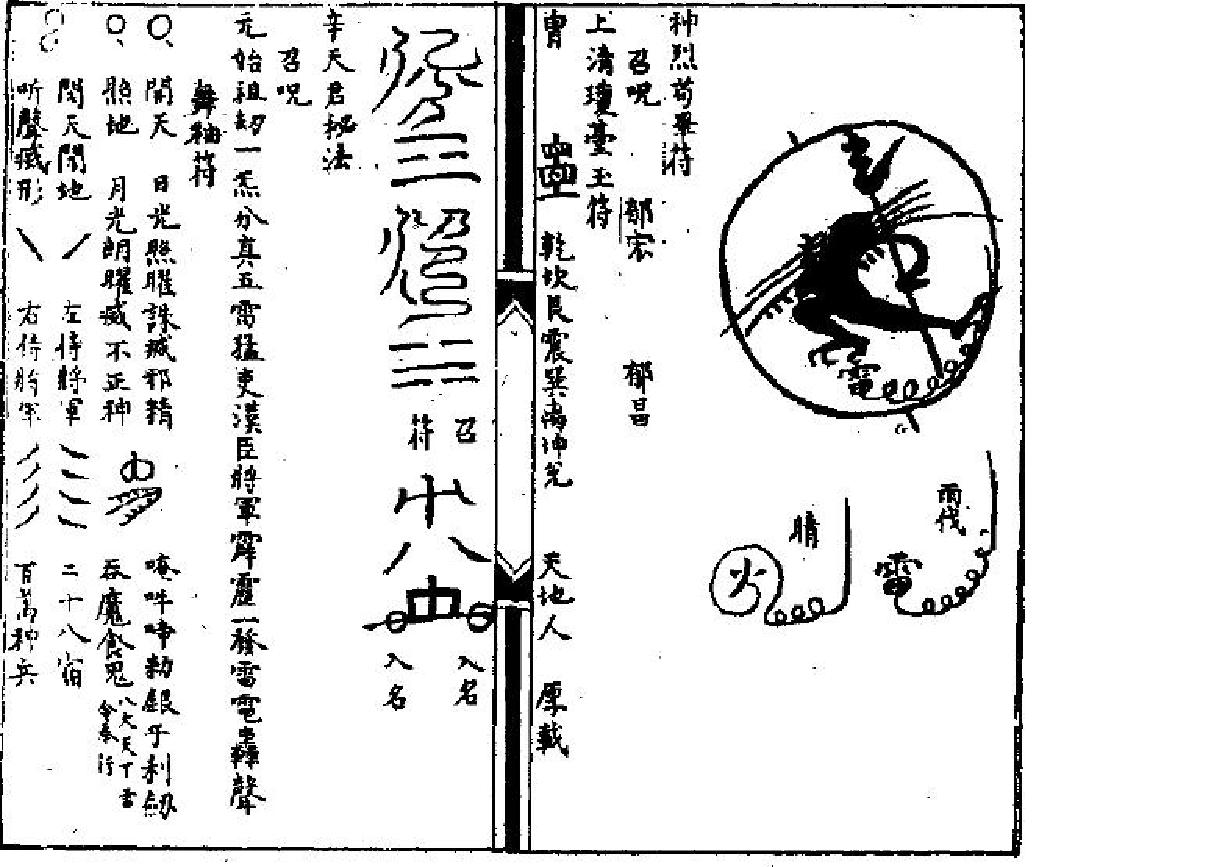 雨伐
雷
晴
火
電
神烈苟畢符
召呪
郁宏
郁昌
上清瓊臺玉符
乾坎艮震巽离坤兌
天地人
召
符
入名
入名
辛天君秘法
召呪
元始祖刼一炁分真五雷猛吏漢臣將軍霹靂一發雷電轟聲
舞袖符
開天
日光照曜誅滅邪精
唵吽
敕
利劒
照地
月光朗曜滅不正神
吞魔食鬼
八大天丁雷
令奉行
閉天閉地
左侍將軍
二十八宿
听聲滅形
右侍將軍
百萬神兵